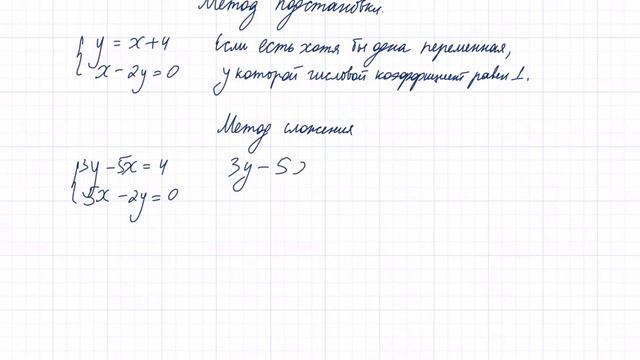 Метод подстановки.
y = x+4 Если есть хотя бы одна переменная,
x - 2y = 0 у которой числовой коэффициент равен 1.
Метод сложения
3y - 5x = 4 3y - 5
5x - 2y = 0